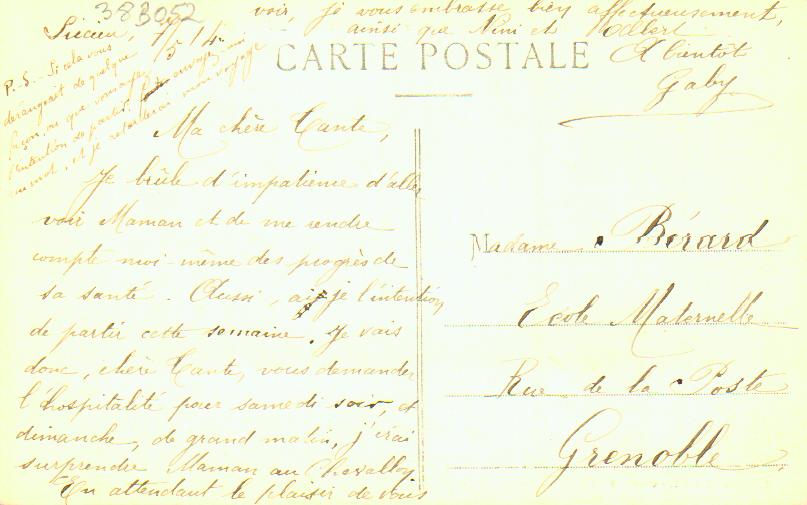 383052
Lucien, 7/5 14
CARTE POSTALE
Ma chère Tante,
Je brûle d'impatience d'aller
voir Maman et de me rendre
compte moi-même des progrès de
sa santé. Aussi, ai-je l'intention
de partir cette semaine. Je vais
donc, chère Tante, vous demander
l'hospitalité pour samedi soir, et
dimanche, de grand matin, j'irai
surprendre Maman au Chevallon.
En attendant le plaisir de vous
voir, je vous embrasse bien affectueusement,
ainsi que Nini et Albert
A bientôt
Gaby
P.-S. - Si cela vous
dérangeait de quelque
façon, ou que vous ayez
l'intention de partir, envoyez-moi
un mot, et je retarderai mon voyage
Madame Bérard
Ecole Maternelle
Rue de la Poste
Grenoble